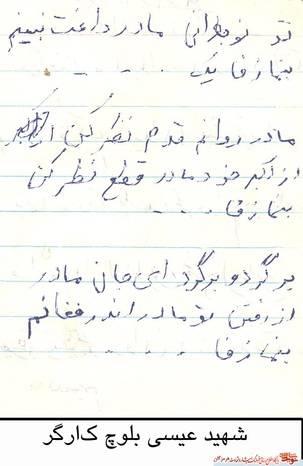 تو نوجوانی مادر داغت نبینم
بنما زفا یک . . . .
مادر روانم قدم نظر کن
از اکبر خود مادر قطع نظر کن
بنما زفا . . .
برگرد و برگرد ای جان مادر
از رفتن تو مادر اندر فغانم
بنما زفا . . . .
شهید عیسی بلوچ کارگر